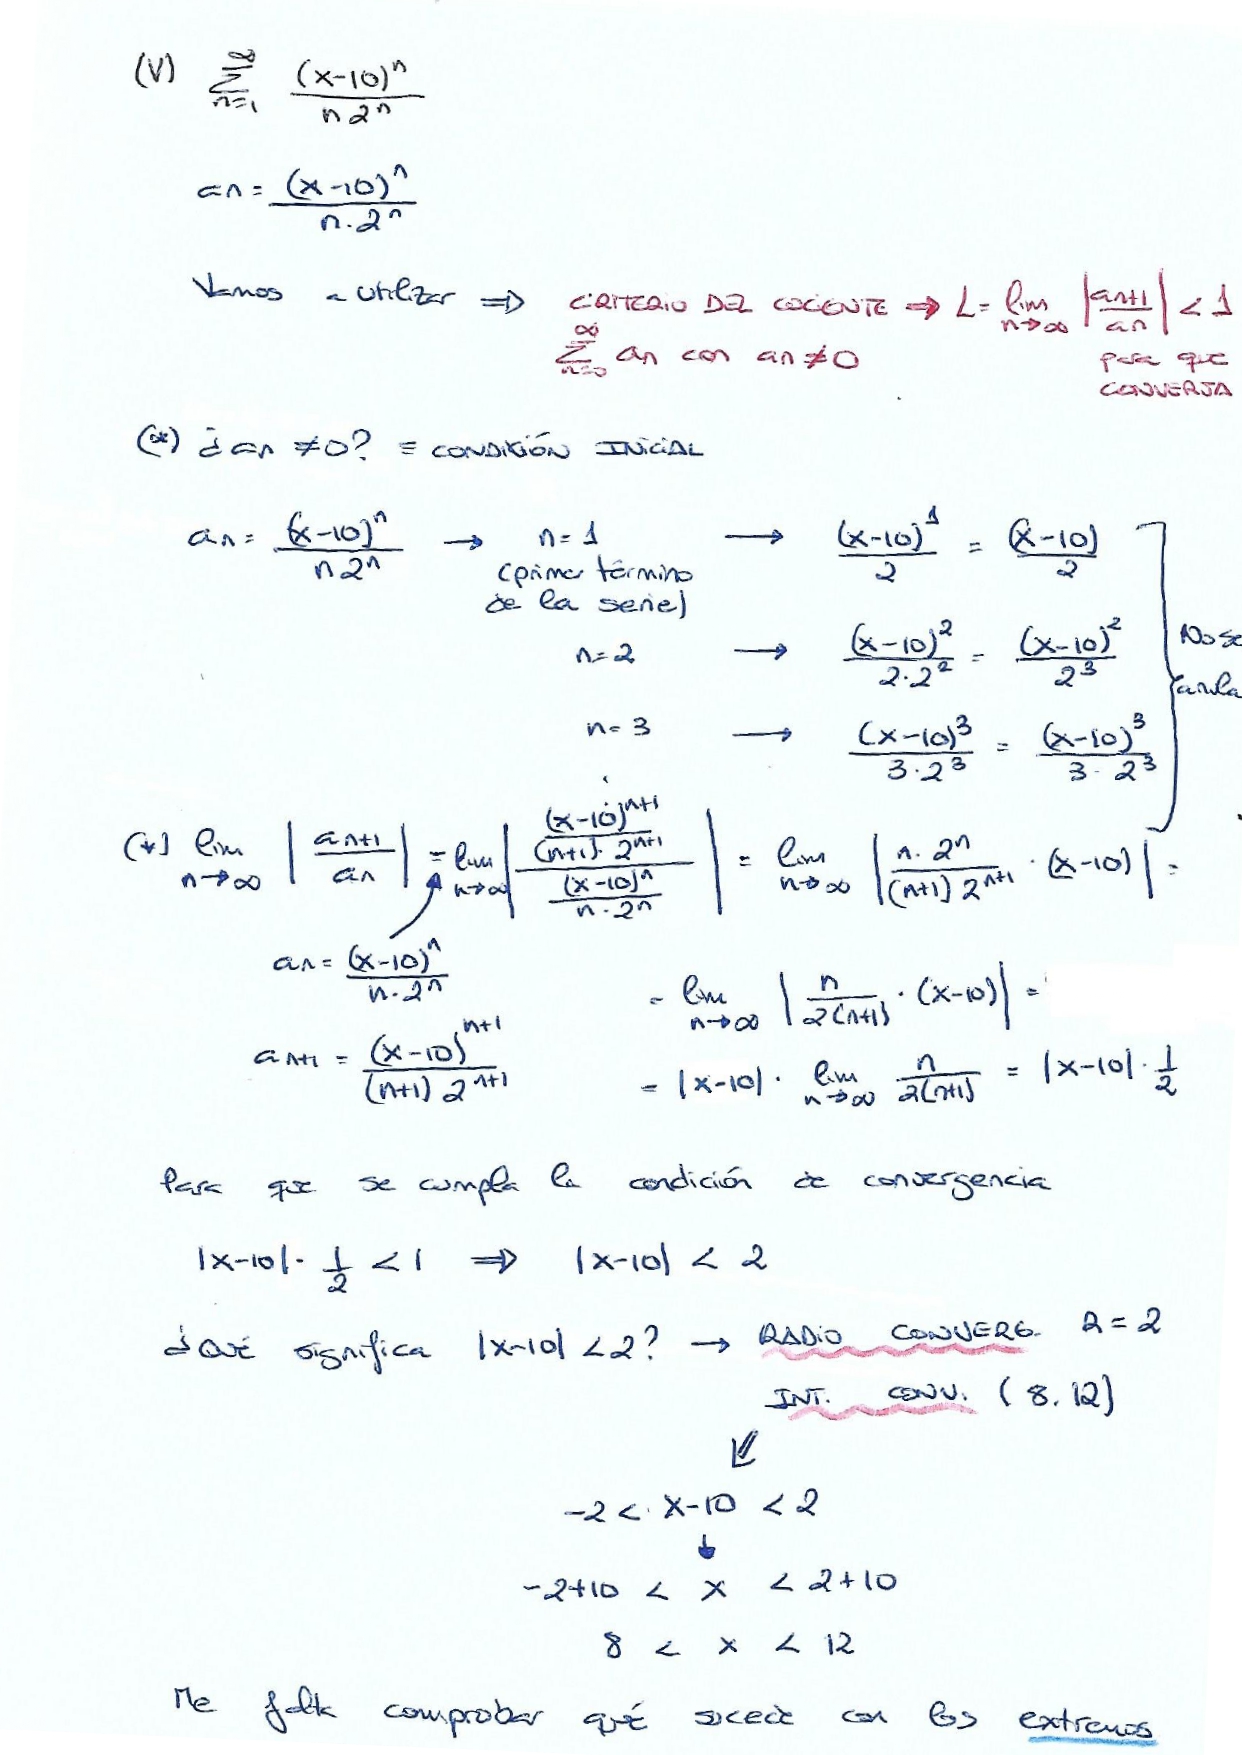 (V) ∞ Σ n=1 (x-10)^n / n 2^n
an = (x-10)^n / n·2^n
Vamos a utilizar ⇒ CRITERIO DEL COCIENTE ⇒ L = lim n→∞ |an+1 / an| < 1
∞ Σ n=0 an con an ≠ 0 para que
CONVERJA
(*) ¿an ≠ 0? ≡ CONDICIÓN INICIAL
an = (x-10)^n / n 2^n → n = 1 → (x-10)^1 / 2 = (x-10) / 2
(primer término
de la serie)
n = 2 → (x-10)^2 / 2·2^2 = (x-10)^2 / 2^3 No se
anula
n = 3 → (x-10)^3 / 3·2^3 = (x-10)^3 / 3·2^3
(*) lim n→∞ |an+1 / an| = lim n→∞ |(x-10)^n+1 / (n+1)·2^n+1 / (x-10)^n / n·2^n| = lim n→∞ |n·2^n / (n+1) 2^n+1 · (x-10)| =
an = (x-10)^n / n·2^n
= lim n→∞ |n / 2(n+1) · (x-10)| =
an+1 = (x-10)^n+1 / (n+1) 2^n+1
= |x-10| · lim n→∞ n / 2(n+1) = |x-10| · 1/2
Para que se cumpla la condición de convergencia
|x-10| · 1/2 < 1 ⇒ |x-10| < 2
¿Qué significa |x-10| < 2? → RADIO CONVERG. R = 2
INT. CONV. (8, 12)
-2 < x-10 < 2
-2+10 < x < 2+10
8 < x < 12
Me falta comprobar qué sucede con los extremos